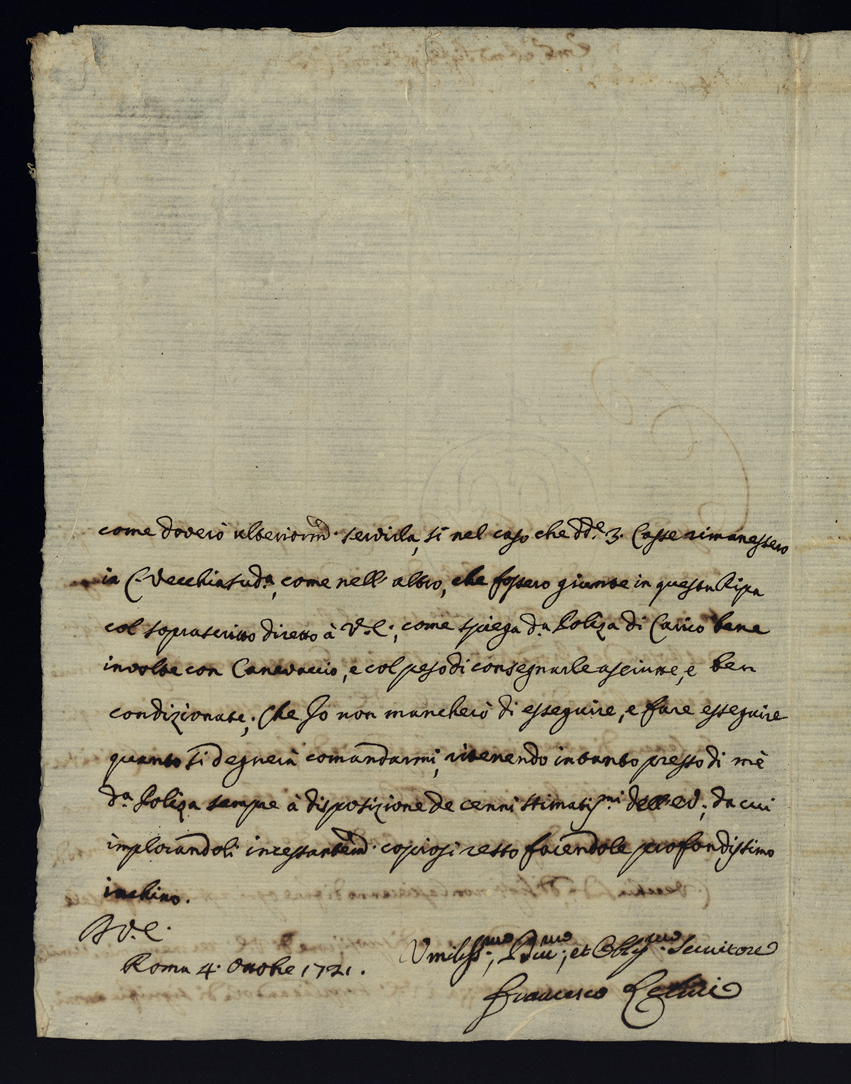 come doverò ulteriorm. servirla, sì nel caso che dd.e 3. Casse rimanessero
in C. Vecchia sud.a, come nell' altro, che fossero giunte in questa Ripa
col soprascritto diretto à V.E:, come spiega d.a Poliza di Carico bene
involte con Canevaccio, e col peso di consegnarle asciutte, e ben
condizionate; Che Io non mancherò di esseguire, e fare esseguire
quanto si degnerà comandarmi, ritenendo intanto presso di mè
d.a Poliza sempre à disposizione de cenni stimatiss.mi dell' E.V.; da cui
implorandoli incessantem. copiosi resto facendole profondissimo
inchino.
D.V.E.
Roma 4. Ottobre 1721.
Umiliss.mo, D.mo, et Obb.mo Servitore
Francesco